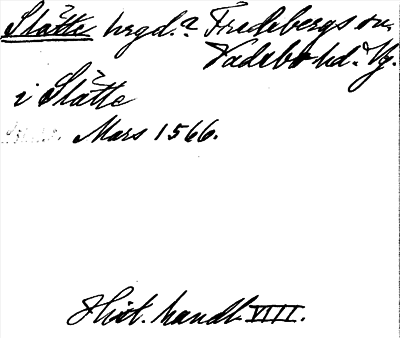 Slätte hrgd.? Fredsbergs sn.
Vadsbo hd. Vg.
i Slätte
Mars 1566.
Hist. handl. VIII.